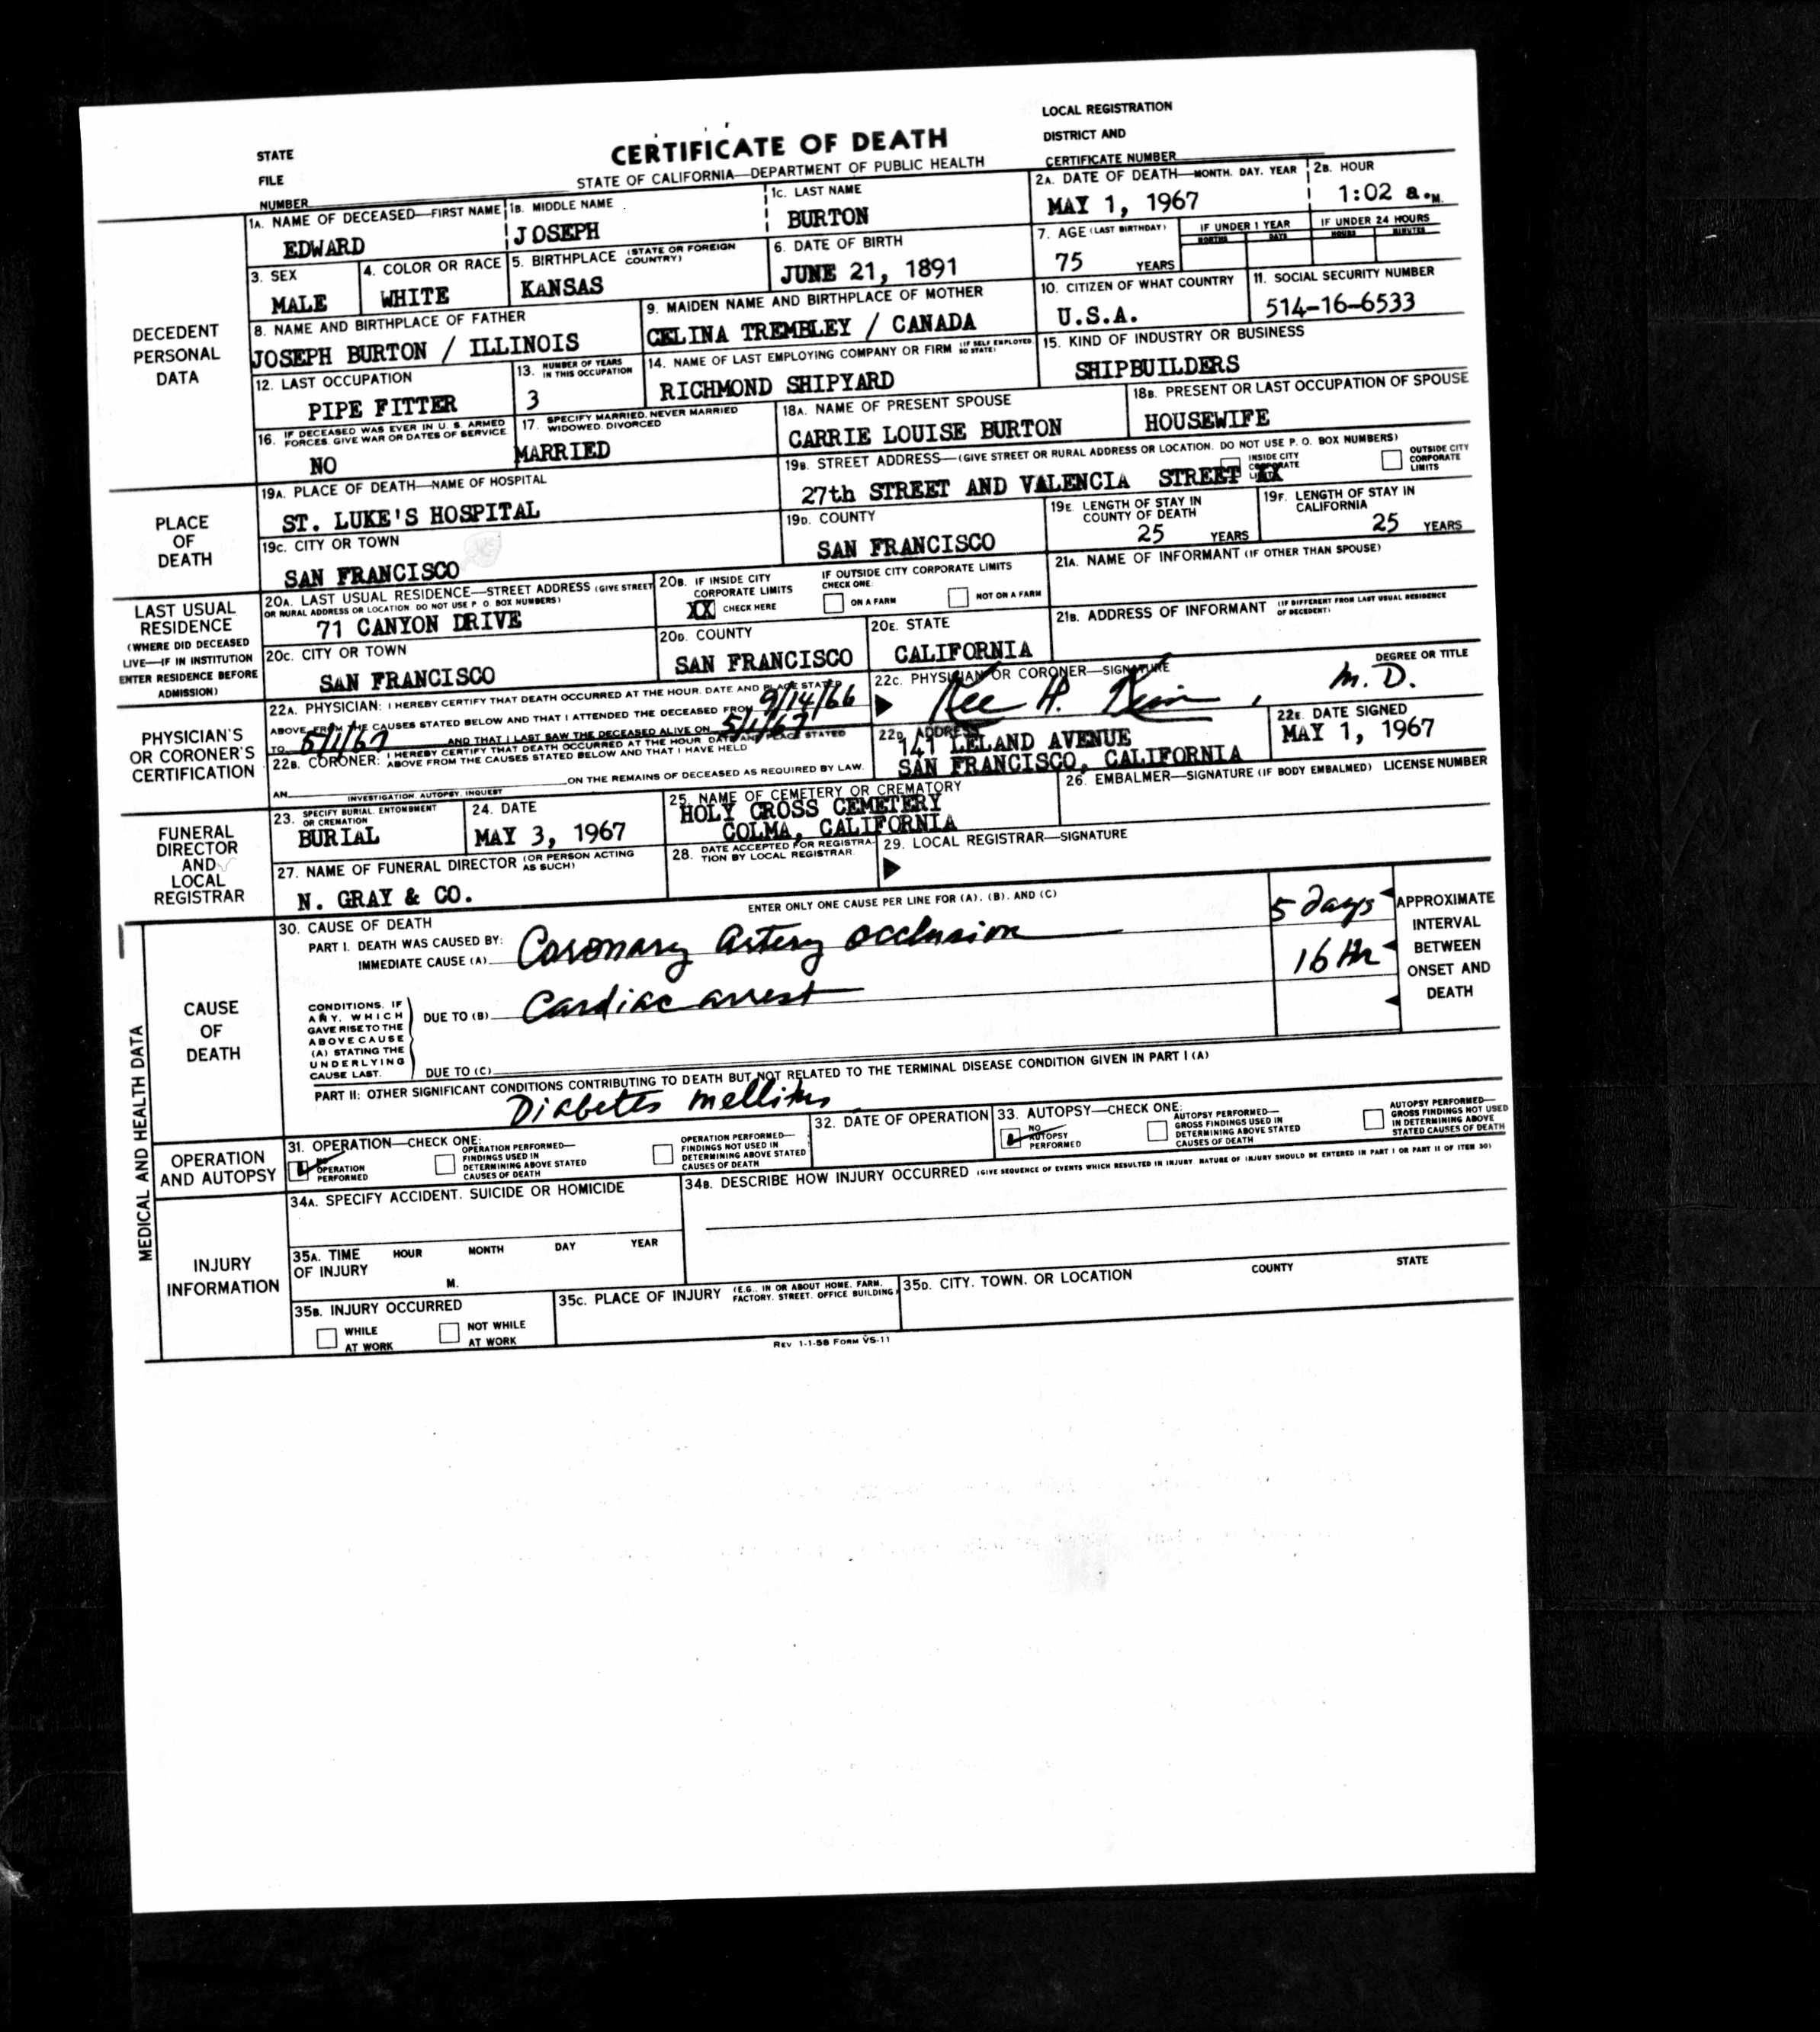 STATE
FILE
NUMBER
CERTIFICATE OF DEATH
STATE OF CALIFORNIA—DEPARTMENT OF PUBLIC HEALTH
LOCAL REGISTRATION
DISTRICT AND
CERTIFICATE NUMBER
DECEDENT
PERSONAL
DATA
1A. NAME OF DECEASED—FIRST NAME
EDWARD
1B. MIDDLE NAME
JOSEPH
1C. LAST NAME
BURTON
2A. DATE OF DEATH—MONTH. DAY. YEAR
MAY 1, 1967
2B. HOUR
1:02 a.M.
3. SEX
MALE
4. COLOR OR RACE
WHITE
5. BIRTHPLACE (STATE OR FOREIGN
COUNTRY)
KANSAS
6. DATE OF BIRTH
JUNE 21, 1891
7. AGE (LAST BIRTHDAY)
75 YEARS
IF UNDER 1 YEAR
MONTHS DAYS
IF UNDER 24 HOURS
HOURS MINUTES
8. NAME AND BIRTHPLACE OF FATHER
JOSEPH BURTON / ILLINOIS
9. MAIDEN NAME AND BIRTHPLACE OF MOTHER
CELINA TREMBLEY / CANADA
10. CITIZEN OF WHAT COUNTRY
U.S.A.
11. SOCIAL SECURITY NUMBER
514-16-6533
12. LAST OCCUPATION
PIPE FITTER
13. NUMBER OF YEARS
IN THIS OCCUPATION
3
14. NAME OF LAST EMPLOYING COMPANY OR FIRM (IF SELF EMPLOYED
SO STATE)
RICHMOND SHIPYARD
15. KIND OF INDUSTRY OR BUSINESS
SHIPBUILDERS
16. IF DECEASED WAS EVER IN U. S. ARMED
FORCES. GIVE WAR OR DATES OF SERVICE
NO
17. SPECIFY MARRIED. NEVER MARRIED
WIDOWED. DIVORCED
MARRIED
18A. NAME OF PRESENT SPOUSE
CARRIE LOUISE BURTON
18B. PRESENT OR LAST OCCUPATION OF SPOUSE
HOUSEWIFE
PLACE
OF
DEATH
19A. PLACE OF DEATH—NAME OF HOSPITAL
ST. LUKE'S HOSPITAL
19B. STREET ADDRESS—(GIVE STREET OR RURAL ADDRESS OR LOCATION. DO NOT USE P. O. BOX NUMBERS)
27th STREET AND VALENCIA STREET XX
INSIDE CITY
CORPORATE
LIMITS
OUTSIDE CITY
CORPORATE
LIMITS
19C. CITY OR TOWN
SAN FRANCISCO
19D. COUNTY
SAN FRANCISCO
19E. LENGTH OF STAY IN
COUNTY OF DEATH
25 YEARS
19F. LENGTH OF STAY IN
CALIFORNIA
25 YEARS
LAST USUAL
RESIDENCE
(WHERE DID DECEASED
LIVE—IF IN INSTITUTION
ENTER RESIDENCE BEFORE
ADMISSION)
20A. LAST USUAL RESIDENCE—STREET ADDRESS (GIVE STREET
OR RURAL ADDRESS OR LOCATION DO NOT USE P. O. BOX NUMBERS)
71 CANYON DRIVE
20B. IF INSIDE CITY
CORPORATE LIMITS
XX CHECK HERE
IF OUTSIDE CITY CORPORATE LIMITS
CHECK ONE:
ON A FARM
NOT ON A FARM
21A. NAME OF INFORMANT (IF OTHER THAN SPOUSE)
20C. CITY OR TOWN
SAN FRANCISCO
20D. COUNTY
SAN FRANCISCO
20E. STATE
CALIFORNIA
21B. ADDRESS OF INFORMANT (IF DIFFERENT FROM LAST USUAL RESIDENCE
OF DECEDENT)
PHYSICIAN'S
OR CORONER'S
CERTIFICATION
22A. PHYSICIAN: I HEREBY CERTIFY THAT DEATH OCCURRED AT THE HOUR. DATE AND PLACE STATED
ABOVE FROM THE CAUSES STATED BELOW AND THAT I ATTENDED THE DECEASED FROM 9/14/66
TO 5/1/67 AND THAT I LAST SAW THE DECEASED ALIVE ON 5/1/67
22B. CORONER: I HEREBY CERTIFY THAT DEATH OCCURRED AT THE HOUR DATE AND PLACE STATED
ABOVE FROM THE CAUSES STATED BELOW AND THAT I HAVE HELD
AN ON THE REMAINS OF DECEASED AS REQUIRED BY LAW.
INVESTIGATION. AUTOPSY. INQUEST
22C. PHYSICIAN OR CORONER—SIGNATURE
DEGREE OR TITLE
H. M.D.
22D. ADDRESS
141 LELAND AVENUE
SAN FRANCISCO, CALIFORNIA
22E. DATE SIGNED
MAY 1, 1967
FUNERAL
DIRECTOR
AND
LOCAL
REGISTRAR
23. SPECIFY BURIAL. ENTOMBMENT
OR CREMATION
BURIAL
24. DATE
MAY 3, 1967
25. NAME OF CEMETERY OR CREMATORY
HOLY CROSS CEMETERY
COLMA, CALIFORNIA
26. EMBALMER—SIGNATURE (IF BODY EMBALMED) LICENSE NUMBER
27. NAME OF FUNERAL DIRECTOR (OR PERSON ACTING
AS SUCH)
N. GRAY & CO.
28. DATE ACCEPTED FOR REGISTRA-
TION BY LOCAL REGISTRAR
29. LOCAL REGISTRAR—SIGNATURE
MEDICAL AND HEALTH DATA
CAUSE
OF
DEATH
30. CAUSE OF DEATH
ENTER ONLY ONE CAUSE PER LINE FOR (A). (B). AND (C)
PART I. DEATH WAS CAUSED BY:
IMMEDIATE CAUSE (A) Coronary artery occlusion 5 days
CONDITIONS. IF
ANY. WHICH
GAVE RISE TO THE
ABOVE CAUSE
(A) STATING THE
UNDERLYING
CAUSE LAST.
DUE TO (B) Cardiac arrest 16 Hr
DUE TO (C)
APPROXIMATE
INTERVAL
BETWEEN
ONSET AND
DEATH
PART II: OTHER SIGNIFICANT CONDITIONS CONTRIBUTING TO DEATH BUT NOT RELATED TO THE TERMINAL DISEASE CONDITION GIVEN IN PART I (A)
Diabetes mellitus
OPERATION
AND AUTOPSY
31. OPERATION—CHECK ONE:
OPERATION
PERFORMED
OPERATION PERFORMED—
FINDINGS USED IN
DETERMINING ABOVE STATED
CAUSES OF DEATH
OPERATION PERFORMED—
FINDINGS NOT USED IN
DETERMINING ABOVE STATED
CAUSES OF DEATH
32. DATE OF OPERATION
33. AUTOPSY—CHECK ONE:
NO
AUTOPSY
PERFORMED
AUTOPSY PERFORMED—
GROSS FINDINGS USED IN
DETERMINING ABOVE STATED
CAUSES OF DEATH
AUTOPSY PERFORMED—
GROSS FINDINGS NOT USED
IN DETERMINING ABOVE
STATED CAUSES OF DEATH
INJURY
INFORMATION
34A. SPECIFY ACCIDENT. SUICIDE OR HOMICIDE
34B. DESCRIBE HOW INJURY OCCURRED (GIVE SEQUENCE OF EVENTS WHICH RESULTED IN INJURY NATURE OF INJURY SHOULD BE ENTERED IN PART I OR PART II OF ITEM 30)
35A. TIME HOUR MONTH DAY YEAR
OF INJURY
M.
35B. INJURY OCCURRED
WHILE
AT WORK
NOT WHILE
AT WORK
35C. PLACE OF INJURY (E.G.. IN OR ABOUT HOME. FARM.
FACTORY. STREET. OFFICE BUILDING)
35D. CITY. TOWN. OR LOCATION COUNTY STATE
REV 1-1-58 FORM VS-11